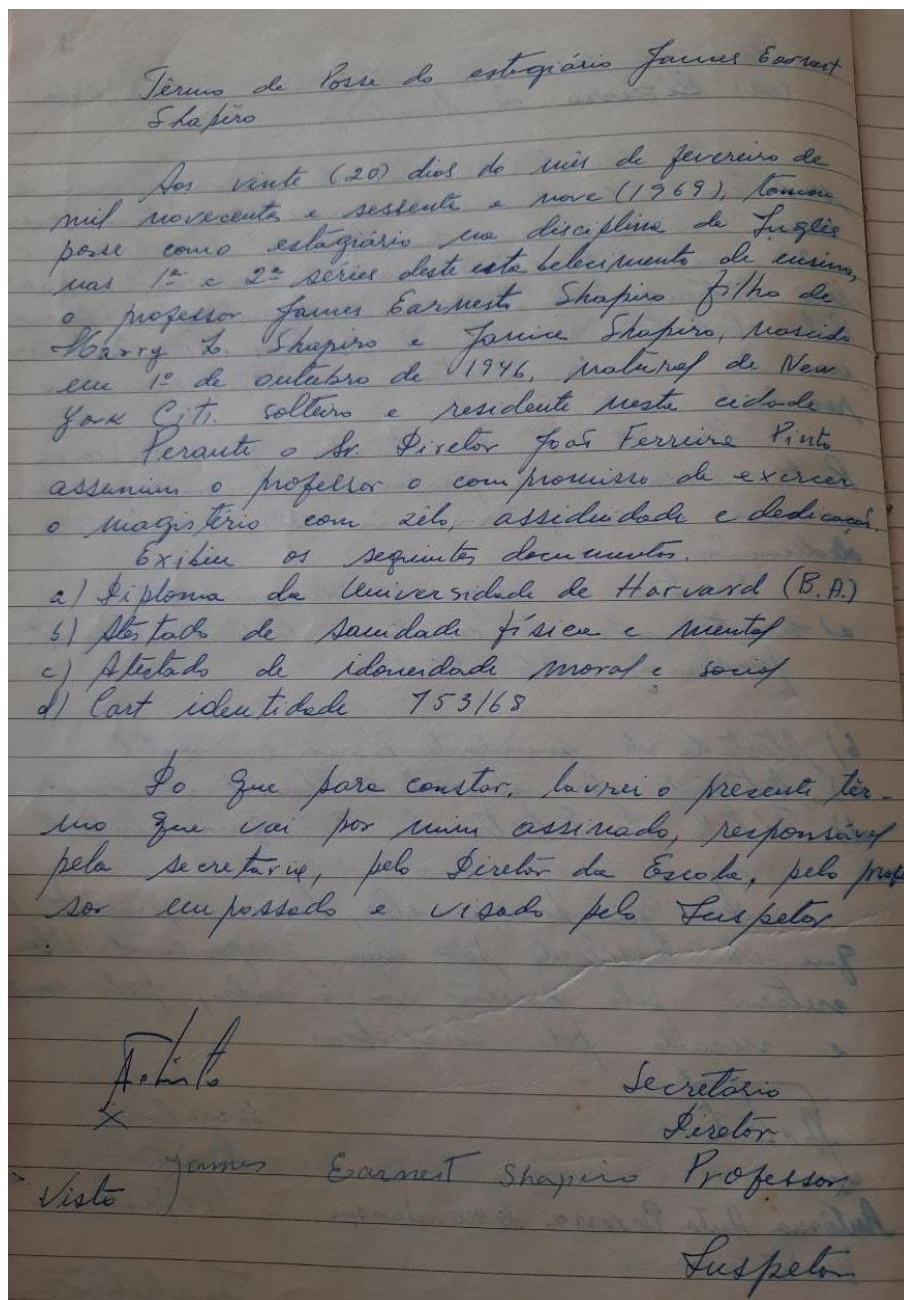 Têrmo de Posse do estagiário James Earnest
Shapiro
Aos vinte (20) dias do mês de fevereiro de
mil novecentos e sessenta e nove (1969), tomou
posse como estagiário na disciplina de Inglês
nas 1ª e 2ª séries deste estabelecimento de ensino,
o professor James Earnest Shapiro filho de
Harry L. Shapiro e Janice Shapiro, nascido
em 1º de outubro de 1946, natural de New
York Citi. solteiro e residente nesta cidade
Perante o Sr. Diretor João Ferreira Pinto
assumiu o professor o compromisso de exercer
o magistério com zêlo, assiduidade e dedicação.
Exibiu os seguintes documentos.
a) Diploma da Universidade de Harvard (B.A.)
b) Atestado de sanidade física e mental
c) Atestado de idoneidade moral e social
d) Cart identidade 753/68
Do que para constar, lavrei o presente têr-
mo que vai por mim assinado, responsável
pela secretaria, pelo Diretor da Escola, pelo profes
sor empossado e visado pelo Inspetor
Secretário
X Diretor
James Earnest Shapiro Professor
Visto
Inspetor